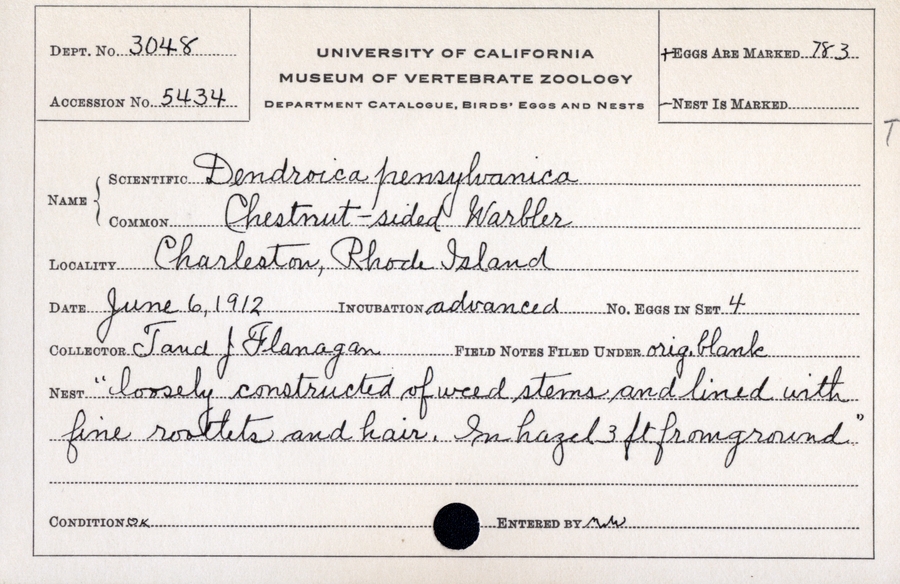 DEPT. No. 3048
UNIVERSITY OF CALIFORNIA
MUSEUM OF VERTEBRATE ZOOLOGY
DEPARTMENT CATALOGUE, BIRDS' EGGS AND NESTS
EGGS ARE MARKED 783
ACCESSION No. 5434
NEST IS MARKED
T
NAME
SCIENTIFIC Dendroica pensylvanica
COMMON Chestnut-sided Warbler
LOCALITY Charleston, Rhode Island
DATE June 6, 1912 INCUBATION advanced No. EGGS IN SET 4
COLLECTOR J and J Flanagan FIELD NOTES FILED UNDER orig. blank
NEST "loosely constructed of weed stems and lined with
fine rootlets and hair. In hazel 3 ft from ground."
CONDITION OK ENTERED BY